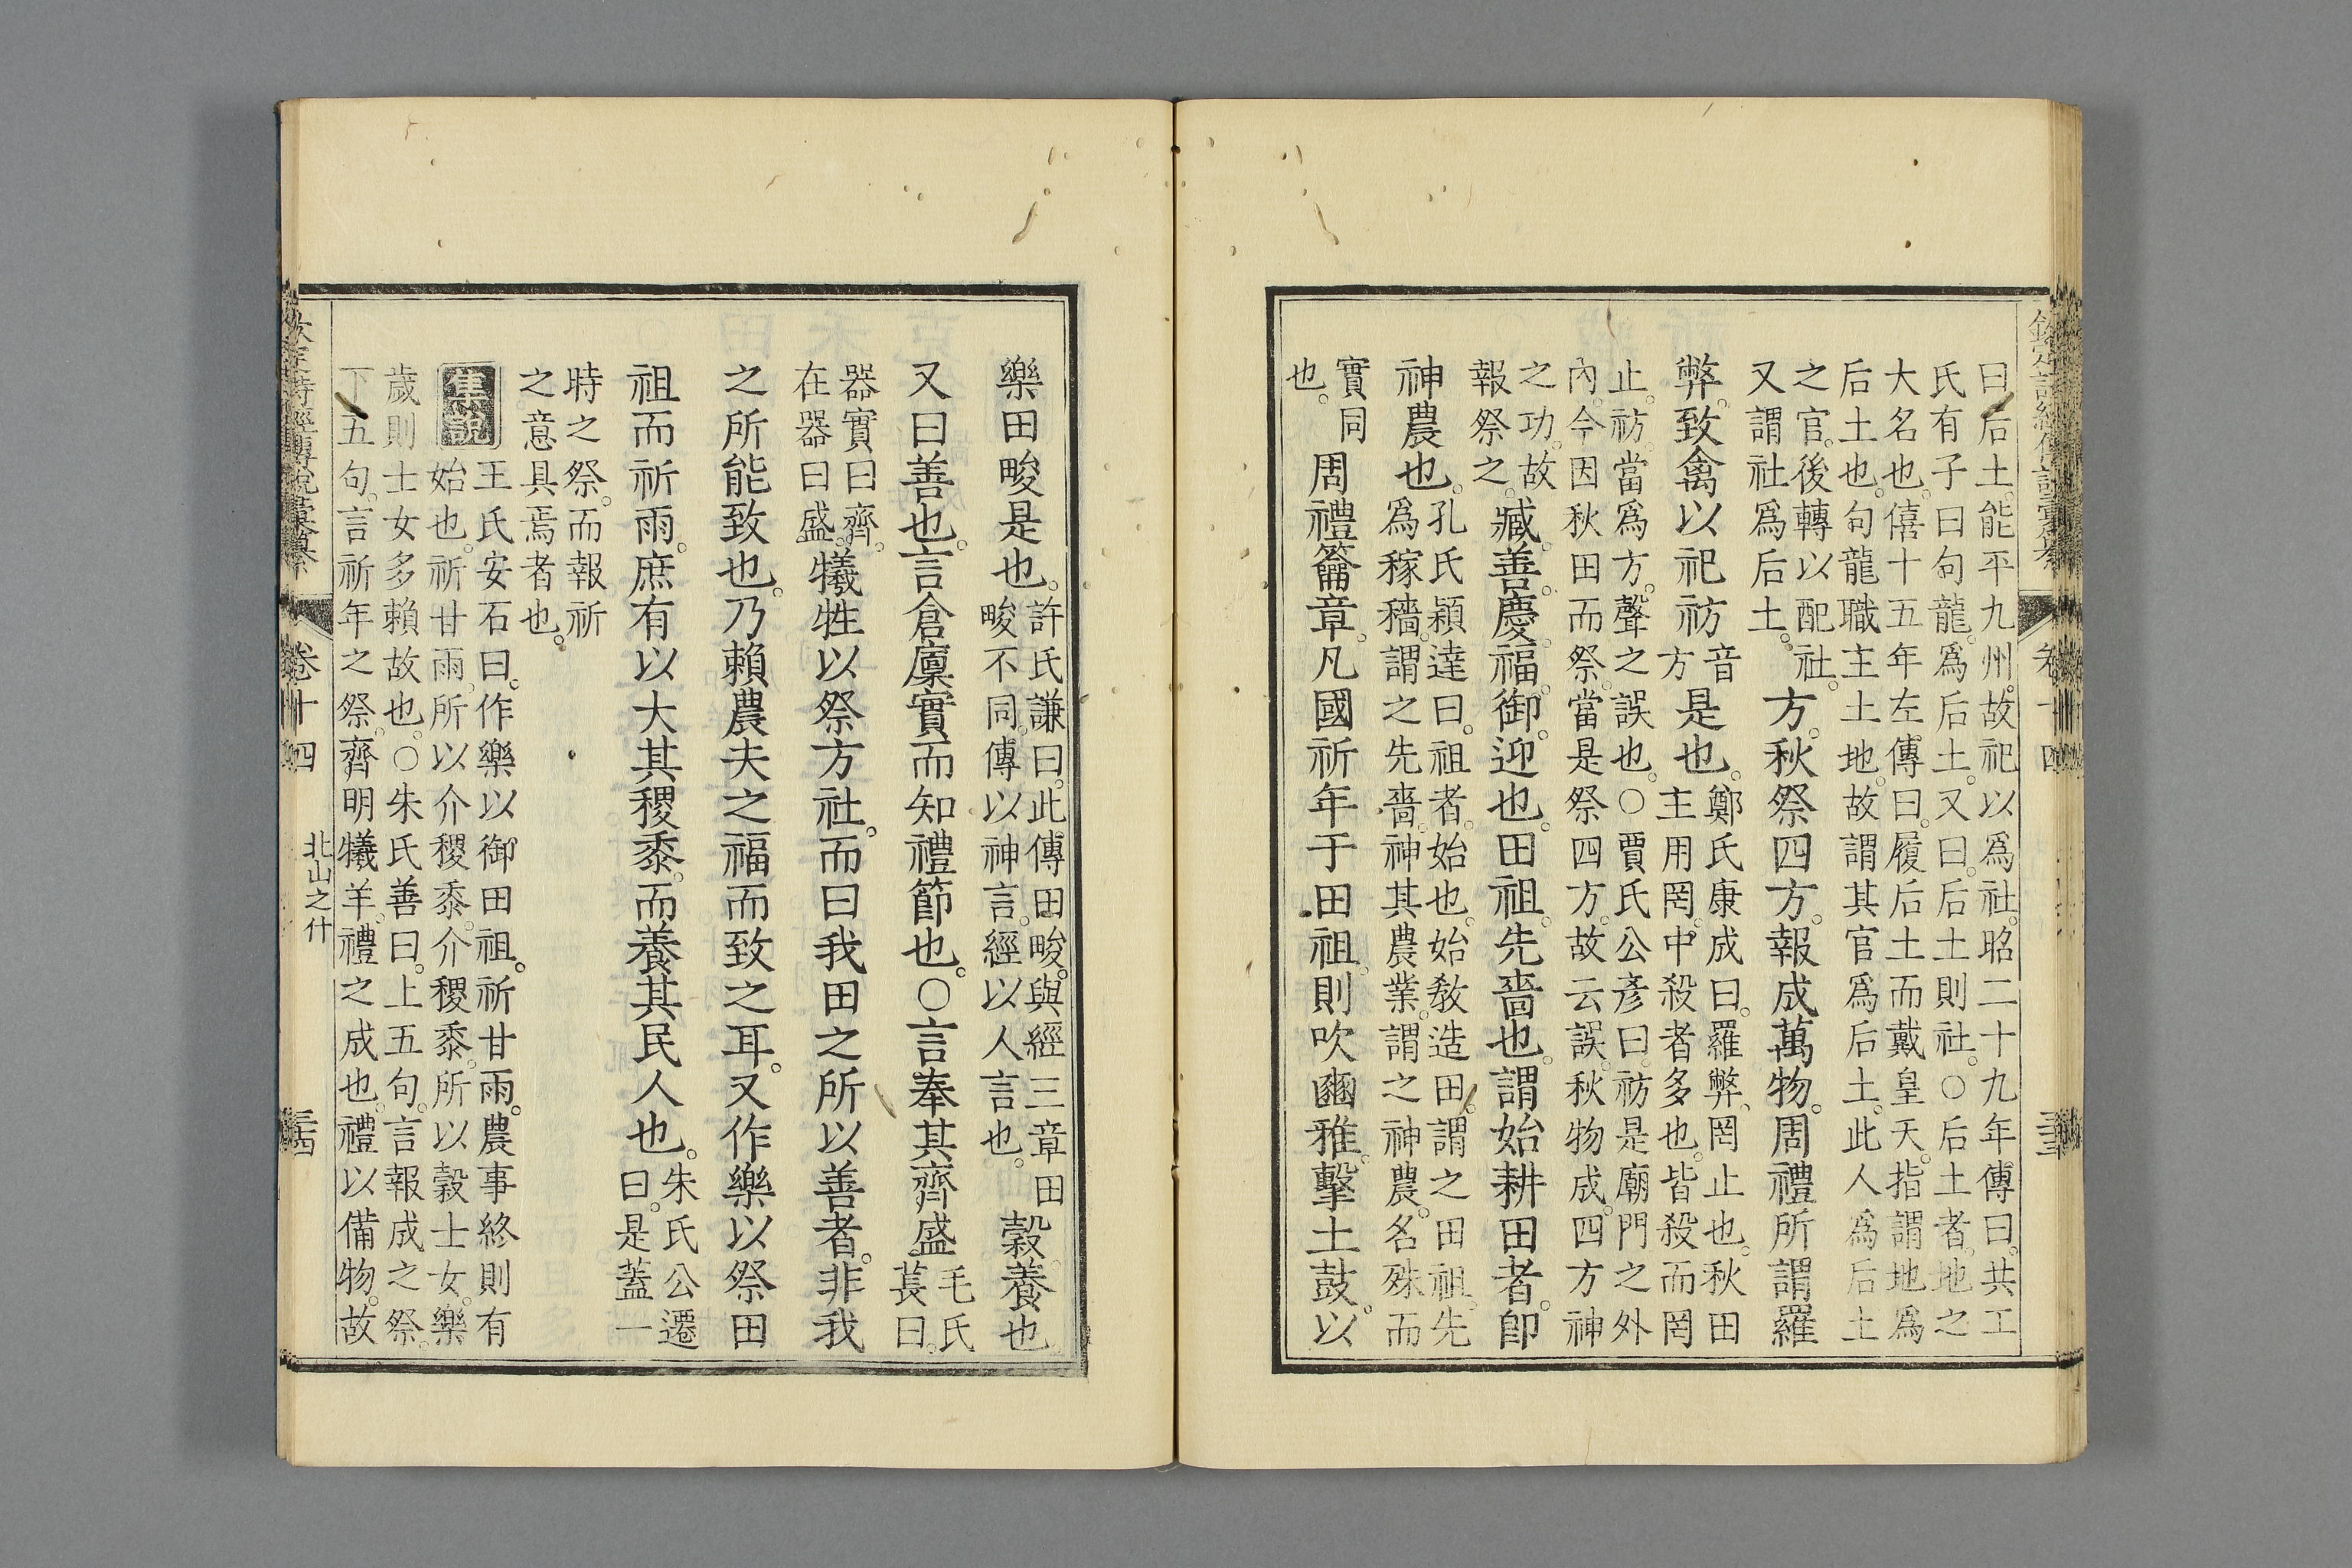 曰后土能平九州故祀以爲社昭二十九年傳曰共工
氏有子曰句龍爲后土又曰后土則社○后土者地之
大名也僖十五年左傳曰履后土而戴皇天指謂地爲
后土也句龍職主土地故謂其官爲后土此人爲后土
之官後轉以配社
又謂社爲后土
方秋祭四方報成萬物周禮所謂羅
弊致禽以祀祊
音
方
是也
鄭氏康成曰羅弊罔止也秋田
主用罔中殺者多也皆殺而罔
止祊當爲方聲之誤也○賈氏公彥曰祊是廟門之外
內今因秋田而祭當是祭四方故云誤秋物成四方神
之功故
報祭之
臧善慶福御迎也田祖先嗇也謂始耕田者卽
神農也
孔氏穎達曰祖者始也始敎造田謂之田祖先
爲稼穡謂之先嗇神其農業謂之神農名殊而
實同
也
周禮籥章凡國祈年于田祖則吹豳雅擊土鼓以
欽定詩經傳說彙纂 卷十四 三三
樂田畯是也
許氏謙曰此傳田畯與經三章田
畯不同傳以神言經以人言也
穀養也
又曰善也言倉廩實而知禮節也○言奉其齊盛
毛氏
萇曰
器實曰齊
在器曰盛
犧牲以祭方社而曰我田之所以善者非我
之所能致也乃賴農夫之福而致之耳又作樂以祭田
祖而祈雨庶有以大其稷黍而養其民人也
朱氏公遷
曰是蓋一
時之祭而報祈
之意具焉者也
集說
王氏安石曰作樂以御田祖祈甘雨農事終則有
始也祈甘雨所以介稷黍介稷黍所以穀士女樂
歲則士女多賴故也○朱氏善曰上五句言報成之祭
下五句言祈年之祭齊明犧羊禮之成也禮以備物故
欽定詩經傳說彙纂 卷十四 北山之什 三四